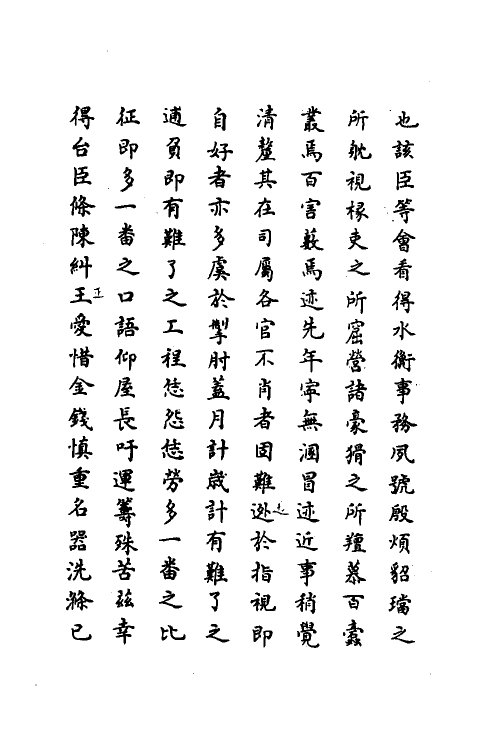 也該臣等會看得水衡事務夙號殷煩貂璫之
所眈視椽吏之所窟營諸豪猾之所羶慕百蠹
叢焉百害薮焉迹先年寧無溷冒迹近事稍覺
清釐其在司屬各官不肖者固難迯於指視即
自好者亦多虞於掣肘蓋月計歲計有難了之
逋負即有難了之工程恁怨恁勞多一番之比
征即多一番之口語仰屋長吁運籌殊苦兹幸
得台臣條陳糾王愛惜金錢慎重名器洗滌已